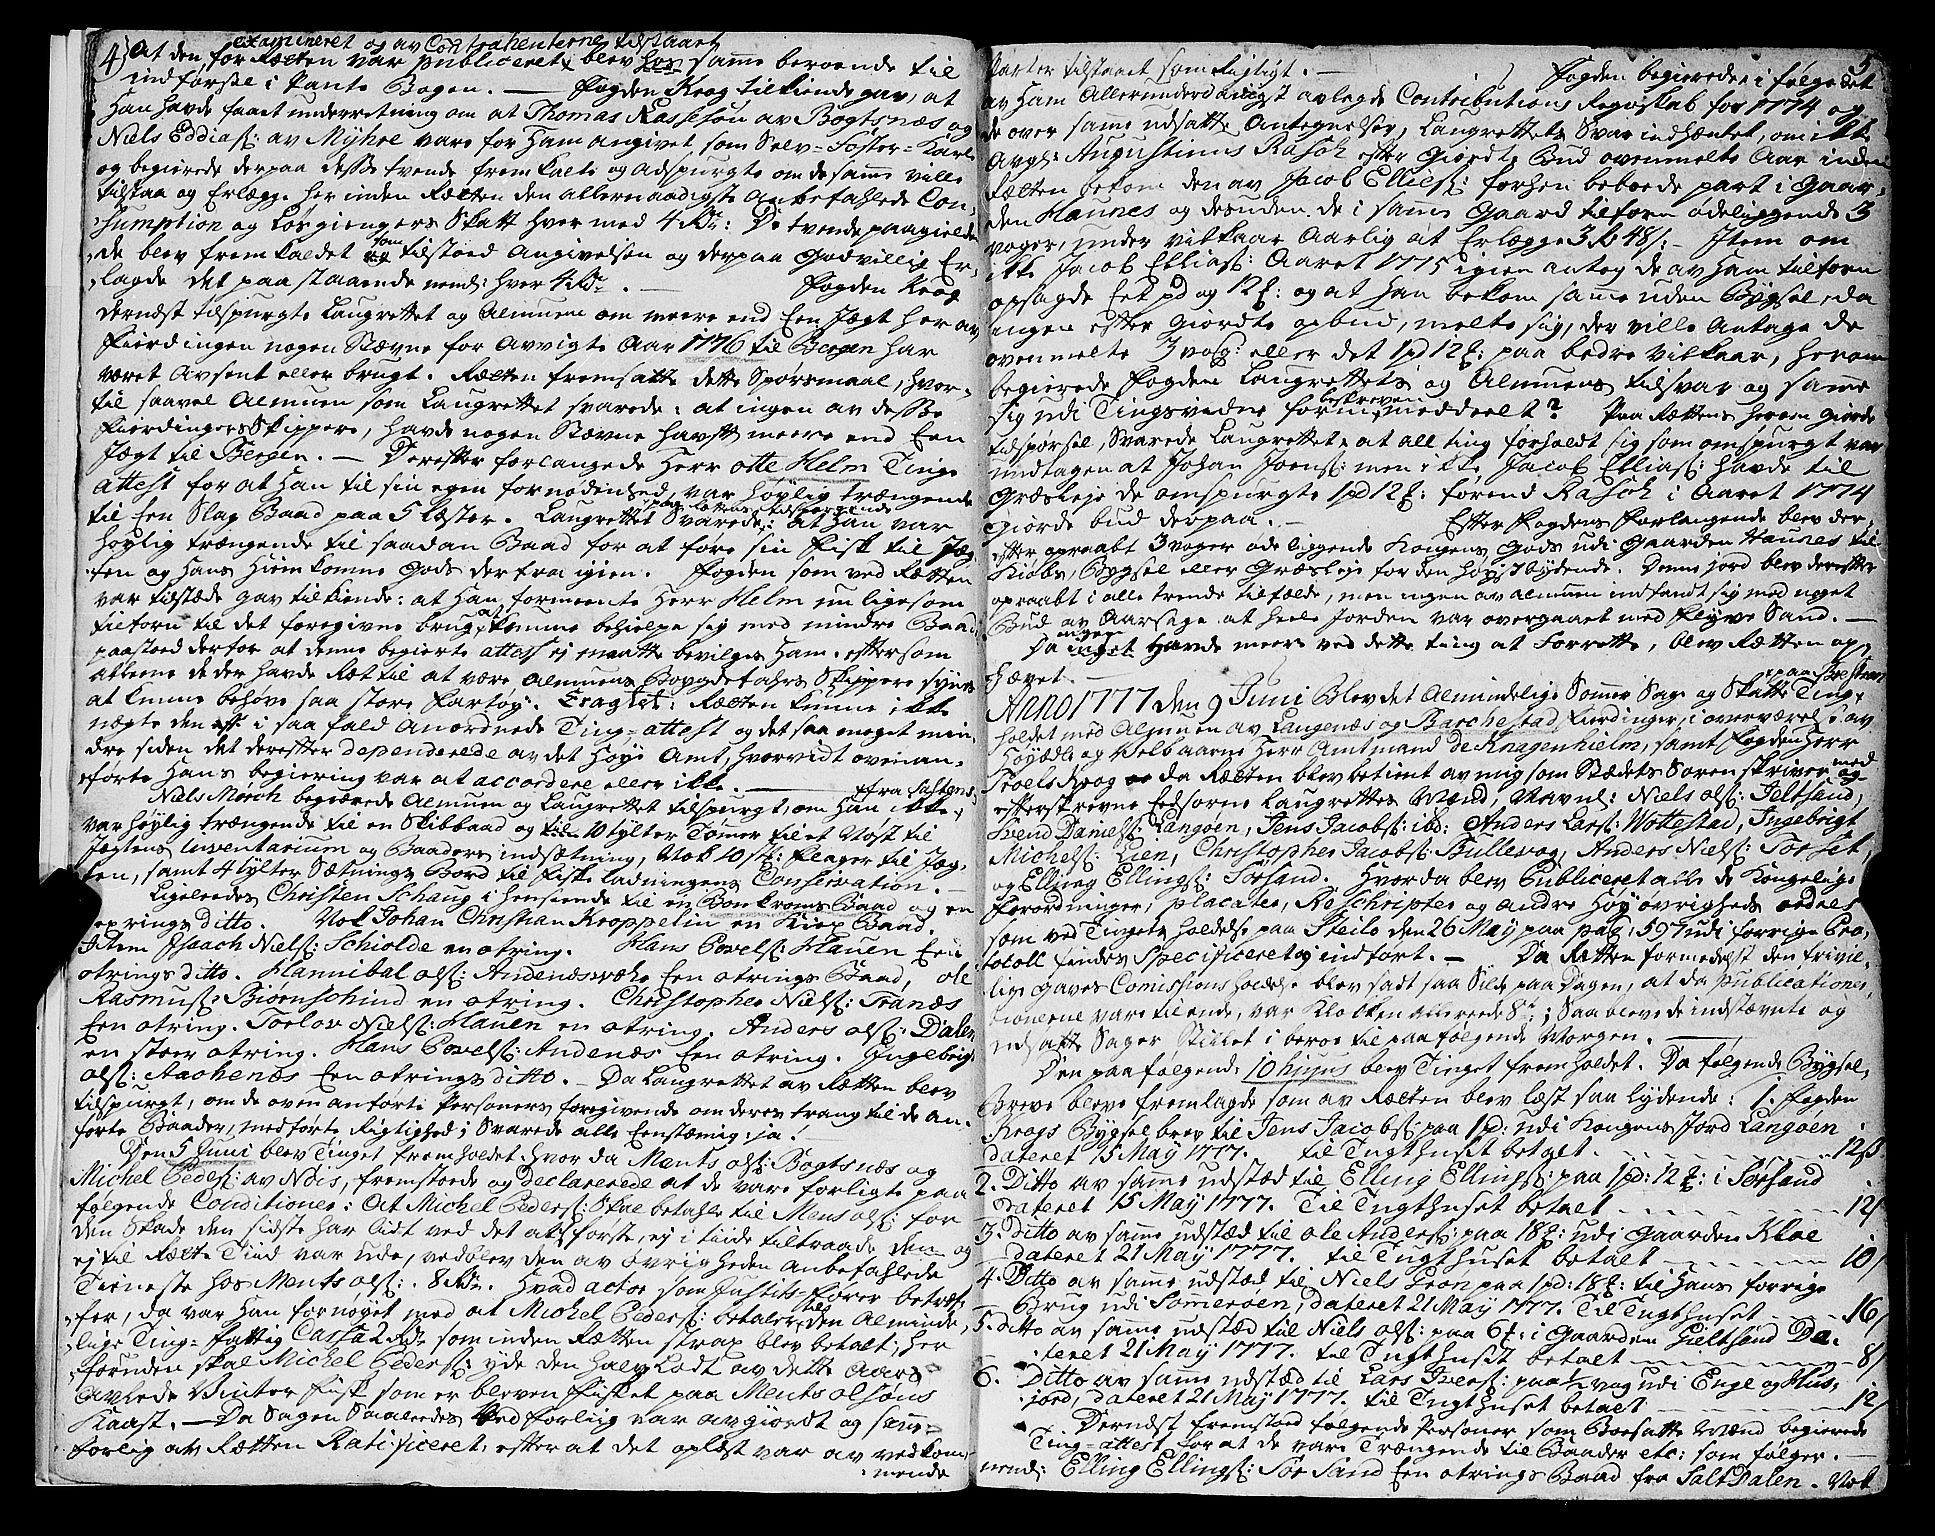 4)
examineret og av Contrahenterne tilstaaet
At den, for Rætten var publiceret, blev hos samme beroende til
indførsel i Pante Bogen. — Fogden Krog tilkiende gav, at
Han havde faaet underretning om at Thomas Rassesøn av Bogtsnæs og
Niels Eddias: av Myhre vare for Ham angivet som Selv-Foster-Karle
og begierede derpaa desse tvende fremkalte og adspurgte om de samme ville
tilstaa og Erlægge her inden Rætten den allernaadigste anbefahlede Con-
sumption og Løsgiengers Skatt hver med 4 Rdr: De tvende paagielden-
de blev fremkaldet som tilstoed Angivelsen og derpaa Godvillig Er-
lagde det paa staaende nemlig hver 4 Rdr. — Fogden Krog
dernæst tilspurgte Laugrettet og Almuen om meere end Een Jægt her av
Fierdingen nogen Stævne for Avvigte Aar 1776 til Bergen har
været Avsent eller brugt. Rætten fremsatte dette Spørsmaal, hvor-
til saavel Almuen som Laugrettet svarede: at ingen av desse
Fierdingers Skippere, havde nogen Stævne havt meere end Een
Jægt til Bergen. — Derefter forlangede Herr Otte Helm Tings
attest for at Han til sin egen fornødenhed var høylig trængende
til Een Slag Baad paa 5 Læster. Laugrettet Svarede: at Han var
paa Rættens tilspørgende
høylig trængende til saadan Baad for at føre sin Fisk til Jæg-
ten og Hans Hiemkomne Gods derfra igien. Fogden som ved Rætten
var tilstæde gav tilkiende: at Han formeente Herr Helm nu ligesom
tilforn til det foregivne brug at kunne behielpe sig med mindre Baad
paastoed derfor at denne begierte attest ej maatte bevilges Ham, eftersom
alleene de der havde Ræt til at være Almuens Bøygdefahrs Skippere synes
at kunne behøve saa store Fartøy. Eragtet: Rætten kunne ikke
nægte den i saa fald anordnede Ting-attest og det saa meget min-
dre siden det derefter dependerede av det Høye Amt, hvorvidt ovenan-
førte Hans begiering var at accordere eller ikke. —
Niels Mørch begierede Almuen og Laugrettet tilspurgt, om Han ikke
var høylig trængende til en Skibbaad og 10 tylter Tømer til et Nøst til
Jægtens Inventarium og Baaders indsætning, Nok 10 st: Plager til Jæg-
ten, samt 4 tylter Sætnings Bord til Fiske ladningens Conservation. —
Ligeleedes Christen Schaug i henseende til en Bonkroms Baad og en
otrings ditto. Nok Johan Christian Kroppelin en Kiex Baad.
Item Isaach Niels: Schiolde en otring. Hans Povels: Hauen Een
otrings ditto. Hannibal Ols: Andenæswahe Een otrings Baad, Ole
Rasmus: Bjørnschind en otring. Christopher Niels: Tranæs
Een otring. Torlov Niels: Hauen en otring. Anders Ols: Dalen
en stoer otring. Hans Povels: Andenæs Een otring. Ingebrigt
Ols: Aachenæs Een otrings ditto. — Da Laugrettet av Rætten blev
tilspurgt, om de ovenanførte Personers foregivende om deres trang til de an-
førte Baader, medførte Rigtighed; Svarede alle Eenstæmig: ja!
Den 5 Juni blev Tinget fremholdet hvor da Ments Ols: Bogtsnæs og
Michel Peders: av Nois, fremstoede og declarerede at de vare forligte paa
følgende Conditioner: At Michel Peders: Skal betahle til Ments Ols: for
den Skade den sidste har lidt ved det at første, ej i tiide tiltraade den og
ej til Rætte Tiid var ude, vedblev den av Øvrigheden anbefahlede
Tieneste hos Ments Ols: 8 Rdr. Hvad actor som Justits-fører betref-
fer, da var Han fornøyet med at Michel Peders: betaler til den Alminde-
lige Ting-fattig Cassa 2 Rdr som inden Rætten strax blev betalt; her
foruden skal Michel Peders: yde den halve Lodt av dette Aars
avlede Vinter fisk som er bleven fisket paa Ments Olsøns
Kaast. — Da Sagen Saaleedes ved forliig var avgiordt og samme
forlig av Rætten Ratificeret, efter at det oplæst var av vedkom-
mende
5
Parter tilstaaet som Rigtigt. — Fogden begierede i følge det
av Ham Allerunderdanigst avlagde Contributions Regnskab for 1774 og
de over samme udsatte Antegnelser, Laugrettets Svar indhæntet, om ikke
Avgl: Augustinus Rasch efter Giordte Bud ovenmelte Aar inden
Rætten bekom den av Jacob Ellies: forhen beboede part i Gaar-
den Haunes og desuden de i samme Gaard tilforn ødeliggende 3
voger, under vilkaar Aarlig at Erlægge 3 Rd 48 s: — Item om
ikke Jacob Ellias: Aaret 1775 igien antog de av Ham tilforn
opsagde Eet pd og 12 : og at Han bekom samme uden Bygsel, da
ingen efter Giordte opbud, melte sig, der ville Antage de
ovenmelte 3 vog: eller det 1 pd 12 : paa bedre vilkaar, herom
begierede Fogden Laugrettets og Almuens tilsvar og samme
sig udi Tingsvidne form beskreven meddeelt? Paa Rættens herom giorde
tilspørsel, Svarede Laugrettet, at all ting forholdt sig som omspurgt var
undtagen at Johan Joens: men ikke Jacob Ellias: Havde til
Græsleje de omspurgte 1 pd 12 : førend Rasch i Aaret 1774
giorde bud derpaa. — Efter Fogdens Forlangende blev der-
efter opraabt 3 voger øde liggende Kongens Gods udi Gaarden Haunes til
Kiøbs, Bygsel eller Græsleje for den Høystbydende. Denne jord blev derefter
opraabt i alle trende tilfælde, men ingen av Almuen indfandt sig med noget
Bud av Aarsage at heele Jorden var overgaaet med Flyve Sand. —
Da ingen havde meere ved dette ting at Forrette, blev Rætten op-
hævet. —
Anno 1777 den 9 Juni Blev det Almindelige Sommer Sage og Skatte Ting
holdet med Almuen av Langenæs og Barchestad Fierdinger, i overværelse av
Høyædle og Velbaarne Herr Amtmand de Knagenhielm, samt Fogden Herr
Troels Krog da Rætten blev betient av mig som Stædets Sorenskriver med
efterskrevne Eedsorne Laugrettes Mænd, Navnl: Niels Ols: Jeltsand,
Svend Daniels: Langøen, Jens Jacobs: ibd: Anders Lars: Wottestad, Ingebrigt
Michels: Lien, Christopher Jacobs: Bullevog, Anders Niels: Torset,
og Elling Ellings: Sørsand. Hvorda blev Publiceret alle de Kongelige
Forordninger, placater, Reschripter og andre Høy øvrigheds ordres
som ved Tingets holdelse paa Steilo den 26 May paa pag: 597 udi forrige Pro-
tocoll findes Specificeret og indført. — Da Rætten formedelst den frivil-
lig gaves Comissions holdelse blev sadt saa Silde paa Dagen, at da publicatio-
nerne vare til ende, var Klokken allereede 8te; Saa blev de indstævnte og
udsatte Sager Stillet i beroe til paa følgende Morgen. —
Den paa følgende 10 hujus blev Tinget fremholdet. Da følgende Bygsel
Breve bleve fremlagde som av Rætten blev læst saa lydende: 1. Fogden
Krogs Bygselbrev til Jens Jacobs: paa 1 pd: udi Kongens Jord Langøen
dateret 15 May 1777. til Tugthuset betalt. — — — 12 s
2. Ditto av samme udstæd til Elling Ellings: paa 1 pd: 12 : i Sørsand
dateret 15 May 1777. Til Tugthuset betalt — — — 12 s
3. Ditto av samme udstæd til Ole Anders: paa 18 : udi Gaarden Kloe
dateret 21 May 1777. til Tugthuset betalt — — — 10 s
4. Ditto av samme udstæd til Niels Tron paa 1 pd: 18 : til Hans forrige
Brug udi Sommerøen, dateret 21 May 1777. Til Tugthuset — — 16 s
5. ditto av samme udstæd til Niels Ols: paa 6 : i Gaarden Gieltsand Da-
teret 21 May 1777. til Tugthuset betalt — — — 8 s
6. Ditto av samme udstæd til Lars Ivers: paa 1 vog udi Enge og Hus-
jord, dateret 21 May 1777. til Tugthuset betalt — — — 12 s
Dernæst fremstoed følgende Personer som Boesatte Mænd begierede
Ting-attest, for at de vare Trængende til Baader etc: som følger. —
nemlig: Elling Ellings: Sør Sand Een otrings Baad fra Saltdalen. Nok